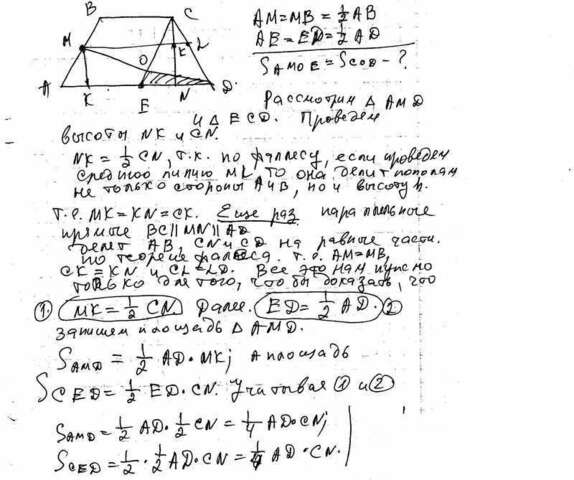 B C
M K L
O
A K E N D
AM=MB=1/2 AB
AE=ED=1/2 AD
SAMOE=SCOD-?
Рассмотрим △ AMD
и △ ECD. Проведем
высоты NK и CN.
NK=1/2 CN, т.к. по Фалесу, если проведем
среднюю линию ML, то она делит пополам
не только стороны A и B, но и высоту h.
Т.е. MK=KN=CK. Еще раз параллельные
прямые BC||MN||AD
делят AB, CN и CD на равные части.
по теореме Фалеса. Т.е. AM=MB,
CK=KN и CL=LD. Все это нам нужно
только для того, чтобы доказать, что
① MK=1/2 CN Далее. ED=1/2 AD. ②
запишем площадь △ AMD.
SAMD=1/2 AD·MK; А площадь
SCED=1/2 ED·CN. Учитывая ① и ②
SAMD=1/2 AD·1/2 CN=1/4 AD·CN;
SCED=1/2·1/2 AD·CN=1/4 AD·CN.